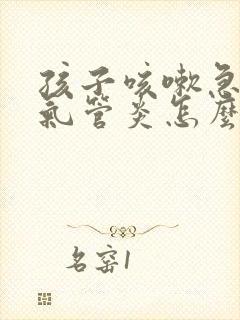 孩子咳嗽急
氣管炎怎麼
名窑1